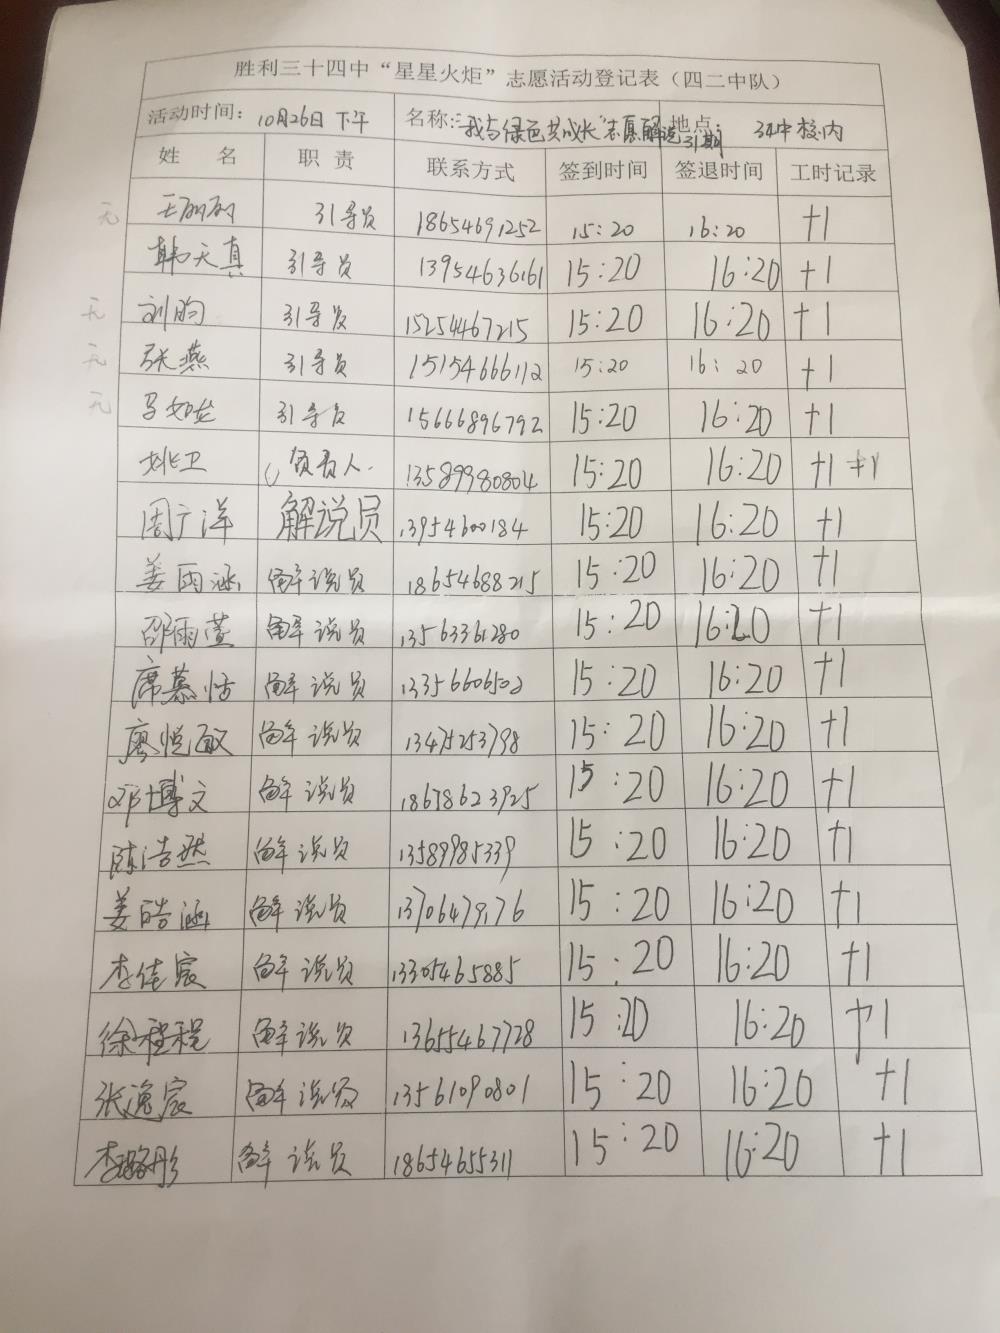 胜利三十四中“星星火炬”志愿活动登记表（四二中队）
活动时间：10月26日 下午 名称：“我与绿色共成长”志愿解说31期 地点：34中校内
姓 名 职 责 联系方式 签到时间 签退时间 工时记录
无 王丽丽 引导员 18654691252 15:20 16:20 +1
韩天真 引导员 13954636161 15:20 16:20 +1
无 刘昀 引导员 15254467215 15:20 16:20 +1
无 张燕 引导员 15154666112 15:20 16:20 +1
无 引导员 15666896792 15:20 16:20 +1
姚卫 负责人 13589980804 15:20 16:20 +1 +1
周广洋 解说员 13954600184 15:20 16:20 +1
姜雨涵 解说员 18654688215 15:20 16:20 +1
邵雨萱 解说员 13563361280 15:20 16:20 +1
席慕恬 解说员 13356606502 15:20 16:20 +1
廖悦敏 解说员 13475253798 15:20 16:20 +1
邓博文 解说员 18678623925 15:20 16:20 +1
陈浩然 解说员 13589985339 15:20 16:20 +1
姜皓涵 解说员 13706479176 15:20 16:20 +1
李佳宸 解说员 13305465885 15:20 16:20 +1
徐程程 解说员 13655467728 15:20 16:20 +1
张逸宸 解说员 13561090801 15:20 16:20 +1
李璐彤 解说员 18654655311 15:20 16:20 +1